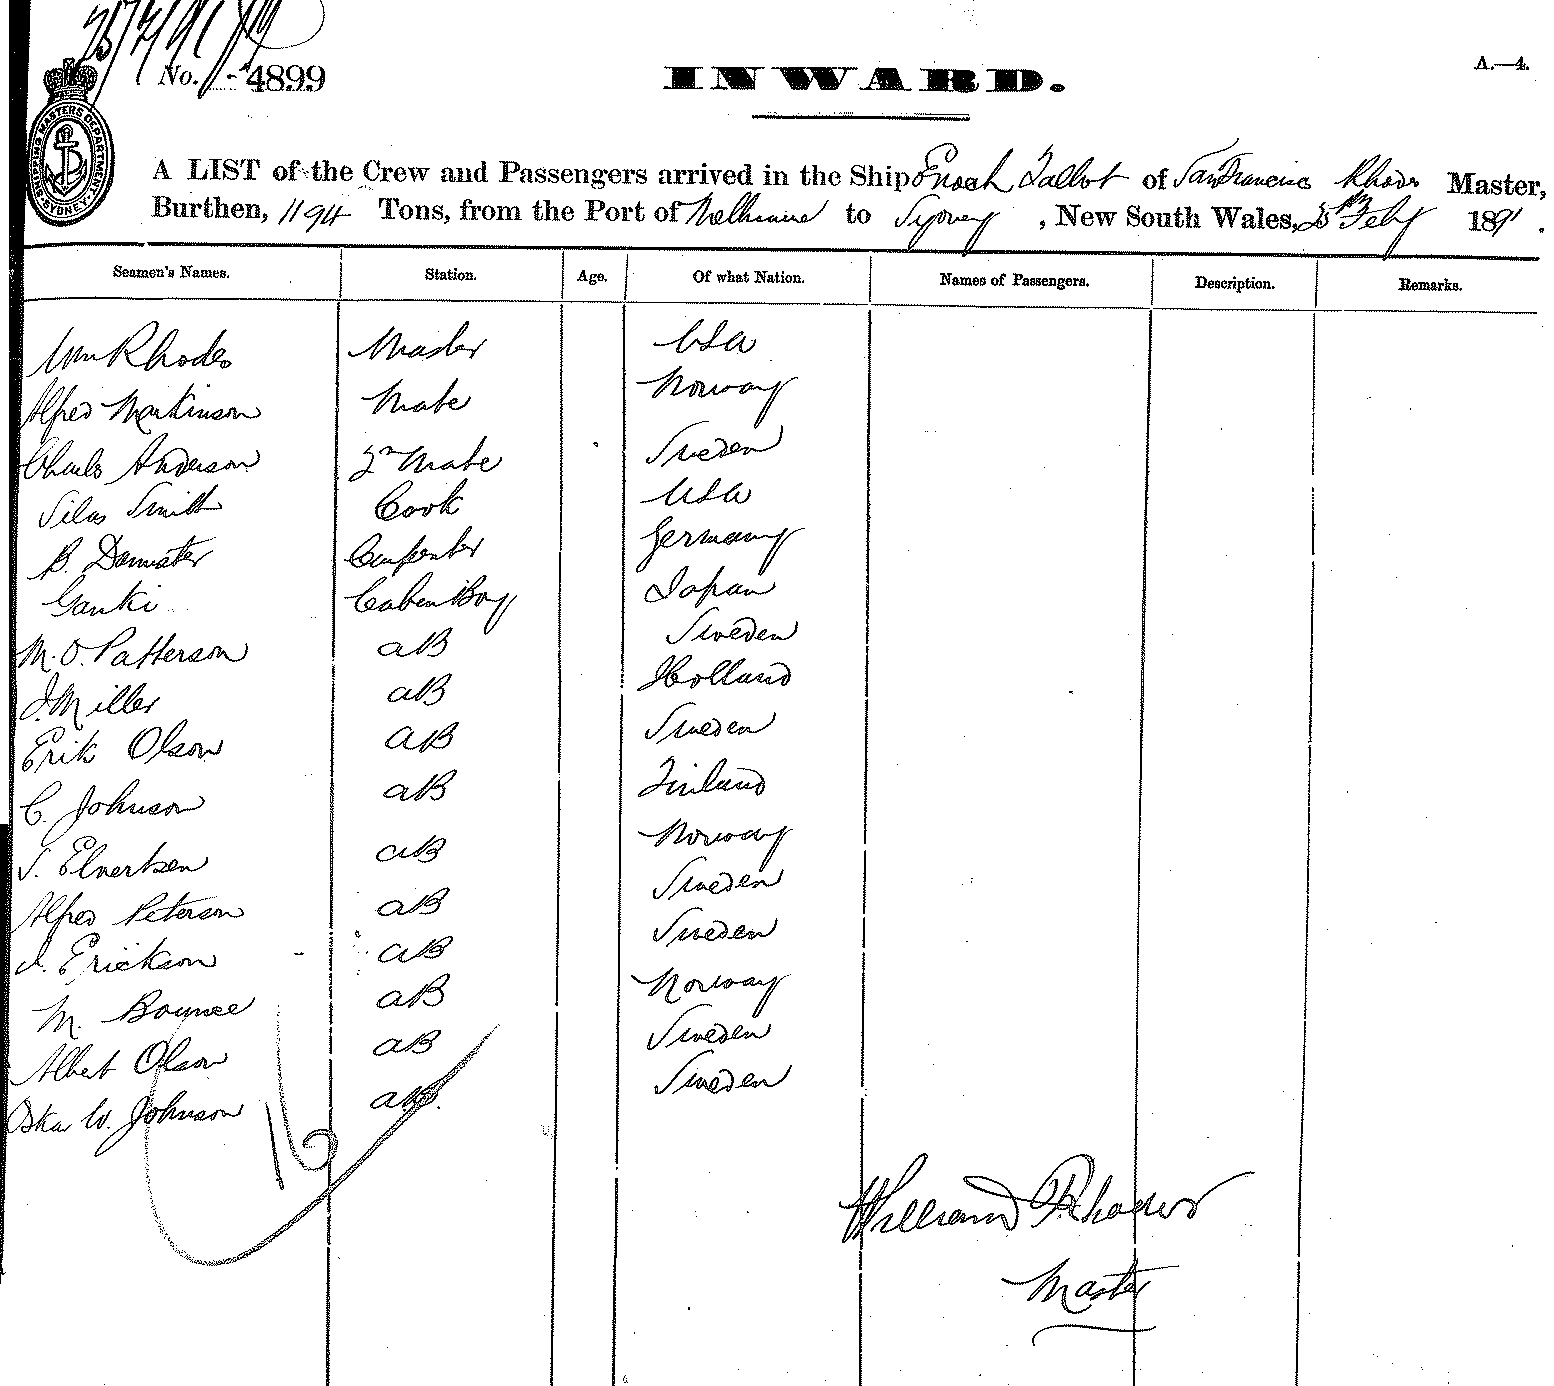 25/2/91
No. -4899
INWARD.
A.—4.
SHIPPING MASTERS DEPARTMENT SYDNEY
A LIST of the Crew and Passengers arrived in the Ship Enoch Talbot of San Francisco Rhodes Master,
Burthen, 1194 Tons, from the Port of Melbourne to Sydney, New South Wales, 25th Feby 1891.
Seamen's Names. Station. Age. Of what Nation. Names of Passengers. Description. Remarks.
Wm Rhodes Master USA
Alfred Markinson Mate Norway
Charls Anderson 2n Mate Sweden
Silas Smith Cook USA
B. Carpenter Germany
Ganki Caben Boy Japan
M. O. Patterson aB Sweden
J. Miller aB Holland
Erik Olson aB Sweden
C. Johnson aB Finland
S. Elvertsen aB Norway
Alfred Peterson aB Sweden
J. Erickson aB Sweden
M. aB Norway
Albert Olson aB Sweden
Oska W. Johnson aB. Sweden
16
William Rhodes
Master